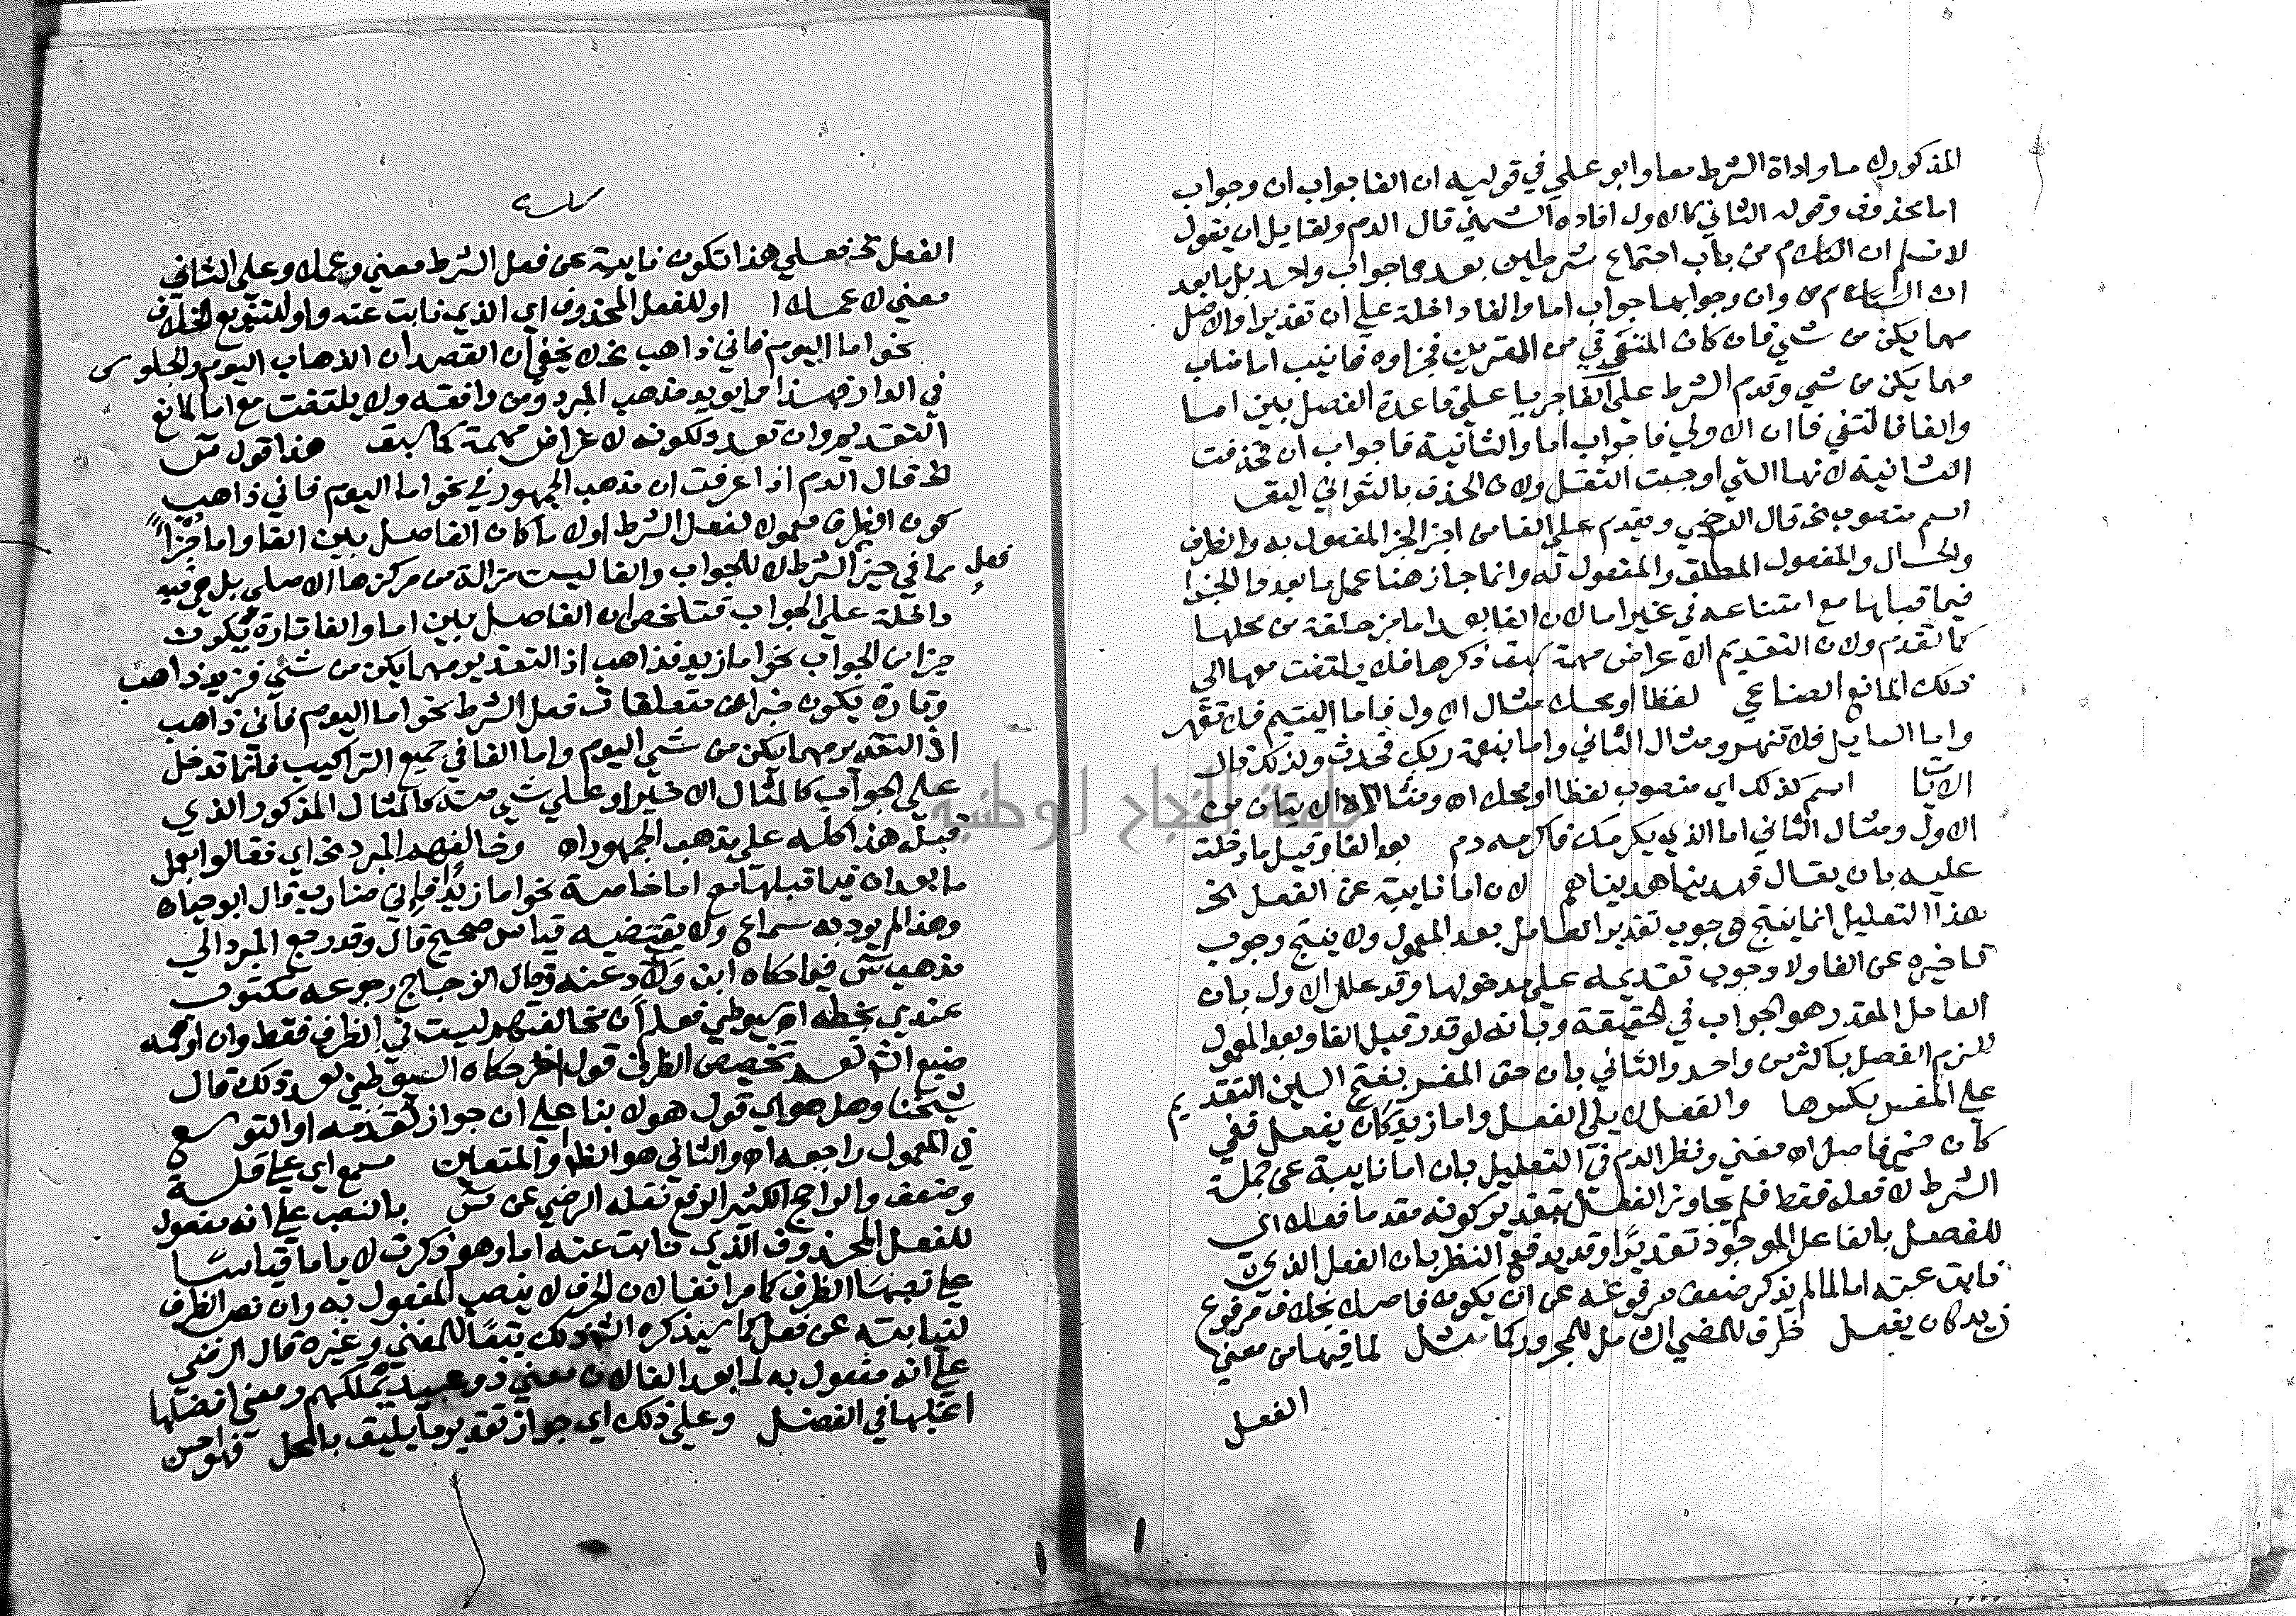 المذكوران ما واداة الشرط معا وابو علي في قوليه ان الفا جواب ان وجواب
اما محذوف وقوله الثاني كالاول افاده الشمني قال الدم ولقايل ان يقول
لا نسلم ان الكلام من باب اجتماع شرطين بعدهما جواب واحد بل ما بعد
ان الشرط وان وجوابها جواب اما والفا داخلة علي ان تقديرا والاصل
مهما يكن من شي فان كان المتوفي من المقربين فجزاوه فانيب اما مناب
مهما يكن من شي وقدم الشرط علي الفا جريا علي قاعدة الفصل بين اما
والفا فالتقي فاان الاولي فا جواب اما والثانية فا جواب ان فحذفت
الثانية لانها التي اوجبت الثقل ولان الحذف بالثواني اليق
اسم منصوب نخ قال الرضي ويقدم علي الفا من اجزا الجزا المفعول به والظرف
والحال والمفعول المطلق والمفعول له وانما جاز هنا عمل ما بعد فا الجزا
فيما قبلها مع امتناعه في غير اما لان الفا بعد اما مزحلقة من محلها
كما تقدم ولان التقديم لاغراض مهمة سبق ذكرها فلا يلتفت معها الي
ذلك المانع الصناعي لفظا او محلا مثال الاول فاما اليتيم فلا تقهر
واما السايل فلا تنهر ومثال الثاني واما بنعمة ربك فحدث ولذلك قال
الايات اسم كذلك اي منصوب لفظا او محلا اه ومثال الايتان من
الاول ومثال الثاني اما الذي يكرمك فاكرمه دم بعد الفا وقبل ما دخلت
عليه بان يقال فهدينا هديناهم لان اما نايبة عن الفعل الخ
هذا التعليل انما ينتج وجوب تقدير العامل بعد المعمول ولا ينتج وجوب
تاخيره عن الفا ولا وجوب تقديمه علي مدخولها وقد علل الاول بان
العامل المقدر هو الجواب في الحقيقة وبانه لو قدر قبل الفا وبعد المعمول
للزم الفصل باكثر من واحد والثاني بان حق المفسر بفتح السين التقديم
علي المفسر بكسرها والفعل لا يلي الفعل واما زيد كان يفعل ففي
كان ضمير فاصل اه مغني ونظر الدم في التعليل بان اما نايبة عن جملة
الشرط لا فعله فقط فلم يجاور الفعل بتقدير كونه مقدما فعلا اي
للفصل بالفاعل الموجود تقديرا وقد يدفع النظر بان الفعل الذي
نابت عنه اما لما لم يذكر ضعف مرفوعه عن ان يكون فاصلا بخلاف مرفوع
زيد كان يفعل ظرف للمضي اك مل للمجرور كما مثل لما فيها من معني
الفعل
الفعل نخ فعلي هذا تكون نايبة عن فعل الشرط معني وعملا وعلي الثاني
معني لا عملا او للفعل المحذوف اي الذي نابت عنه واو لتنويع الخلاف
نحو اما اليوم فاني ذاهب نخ لا يخفي ان القصد ان الذهاب اليوم والجلوس
في الدار فهذا ما يويد مذهب المبرد ومن وافقه ولا يلتفت مع اما لمانع
التقديم وان تعدد لكونه لاغراض مهمة كما سبق هذا قول س
نخ قال الدم اذا عرفت ان مذهب الجمهور في نحو اما اليوم فاني ذاهب
كون الظرف معمولا لفعل الشرط اولا ما كان الفاصل بين الفا واما جزا
فعل
مما في حيز الشرط لا للجواب والفا ليست مزالة من مركزها الاصلي بل هي فيه
داخلة علي الجواب فتلخص ان الفاصل بين اما والفا تارة يكون
جزا من الجواب نحو اما زيد فذاهب اذ التقدير مهما يكن من شي فزيد ذاهب
وتارة يكون جزا من متعلقات فعل الشرط نحو اما اليوم فاني ذاهب
اذ التقدير مهما يكن من شي اليوم واما الفا في جميع التراكيب فانما تدخل
علي الجواب كالمثال الاخير او علي شي منه كالمثال المذكور الذي
قبله هذا كله علي مذهب الجمهور اه وخالفهم المبرد نخ اي فقالوا بعمل
ما بعد ان فيما قبلها مع اما خاصة نحو اما زيدا فاني ضارب قال ابو حيان
وهذا لم يرد به سماع ولا يقتضيه قياس صحيح قال وقد رجع المبرد الي
مذهب س فيما حكاه ابن ولاد عنه وقال الزجاج رجوعه مكتوب
عندي بخطه اه سيوطي فعلم ان مخالفتهم ليست في الظرف فقط وان اوهمه
صنيع الش نعم تخصيص الظرف قول اخر حكاه السيوطي بعد ذلك قال
شيخنا وهل هو اي قول هولا بنا علي ان جواز تقدمه او التوسع
في المعمول راجعه اه والثاني هو الظاهر او المتعين سمع اي علي قلة
وضعف والراجح الكثير الرفع نقله الرضي عن س بالنصب علي انه مفعول
للفعل المحذوف الذي نابت عنه اما وهو ذكرت لا باما قياسا
علي نصبها الظرف كما مر انفا لان الحرف لا ينصب المفعول به وان نصب الظرف
لنيابته عن فعل كما سيذكره الش ذلك يتبعا للمغني وغيره قال الرضي
علي انه مفعول به لما بعد الفا لان معني ذو عبيد يملكهم ومعني افضلها
اغلبها في الفضل وعلي ذلك اي جواز تقدير ما يليق بالمحل فهو احسن
جامعة النجاح الوطنية